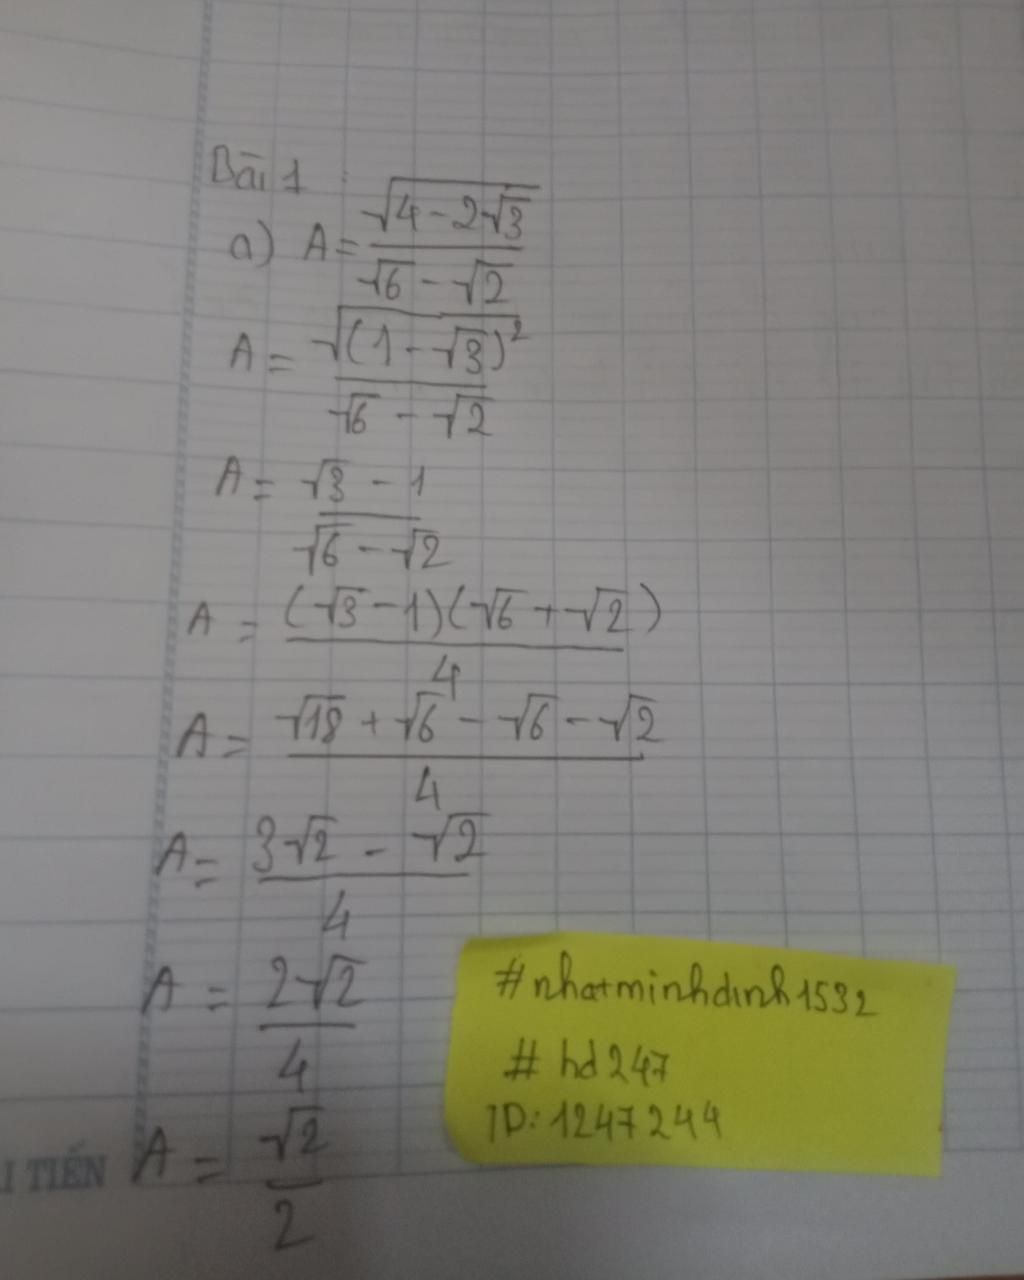 Bài 1
a) A = √(4 - 2√3) / (√6 - √2)
A = √((1 - √3)²) / (√6 - √2)
A = (√3 - 1) / (√6 - √2)
A = (√3 - 1)(√6 + √2) / 4
A = (√18 + √6 - √6 - √2) / 4
A = (3√2 - √2) / 4
A = 2√2 / 4
A = √2 / 2
#nhatminhdinh1532
# hd247
ID: 1247244
I TIẾN